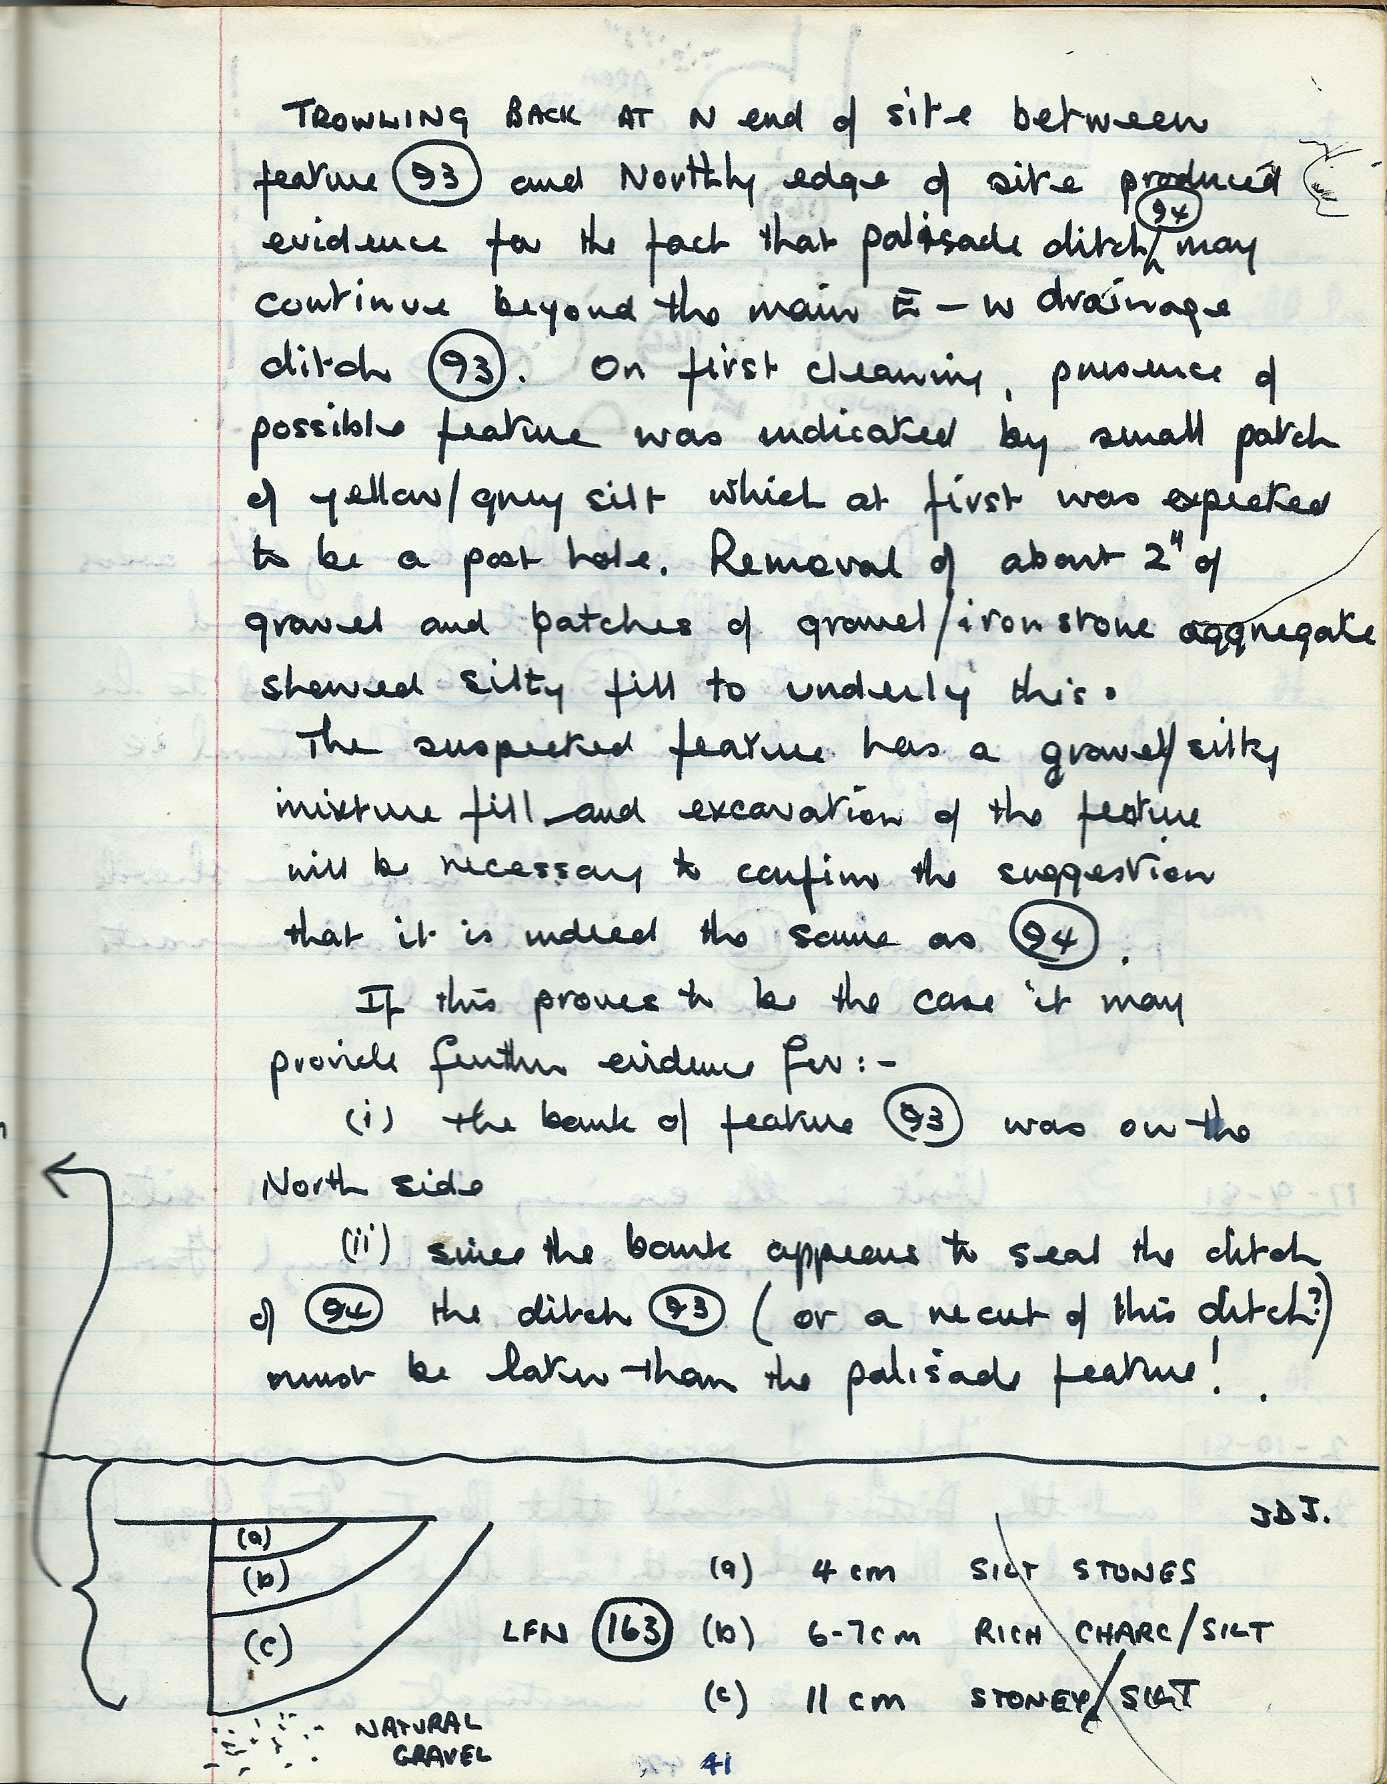 TROWLING BACK AT N end of site between
feature (93) and Northly edge of site produced
evidence for the fact that palisade ditch (94) may
continue beyond the main E - W drainage
ditch (93). On first cleaning, presence of
possible feature was indicated by small patch
of yellow/grey silt which at first was expected
to be a post hole. Removal of about 2" of
gravel and patches of gravel/iron stone aggregate
showed silty fill to underly this.
The suspected feature has a gravel/silty
mixture fill and excavation of the feature
will be necessary to confirm the suggestion
that it is indeed the same as (94).
If this proves to be the case it may
provide further evidence for:-
(i) the bank of feature (93) was on the
North side
(ii) since the bank appears to seal the ditch
of (94) the ditch (93) (or a recut of this ditch?)
must be later than the palisade feature!.
JDJ.
(a)
(b)
(c)
(a) 4 cm SILT STONES
LFN (163) (b) 6-7cm RICH CHARC/SILT
(c) 11 cm STONEY/SILT
NATURAL
GRAVEL
41